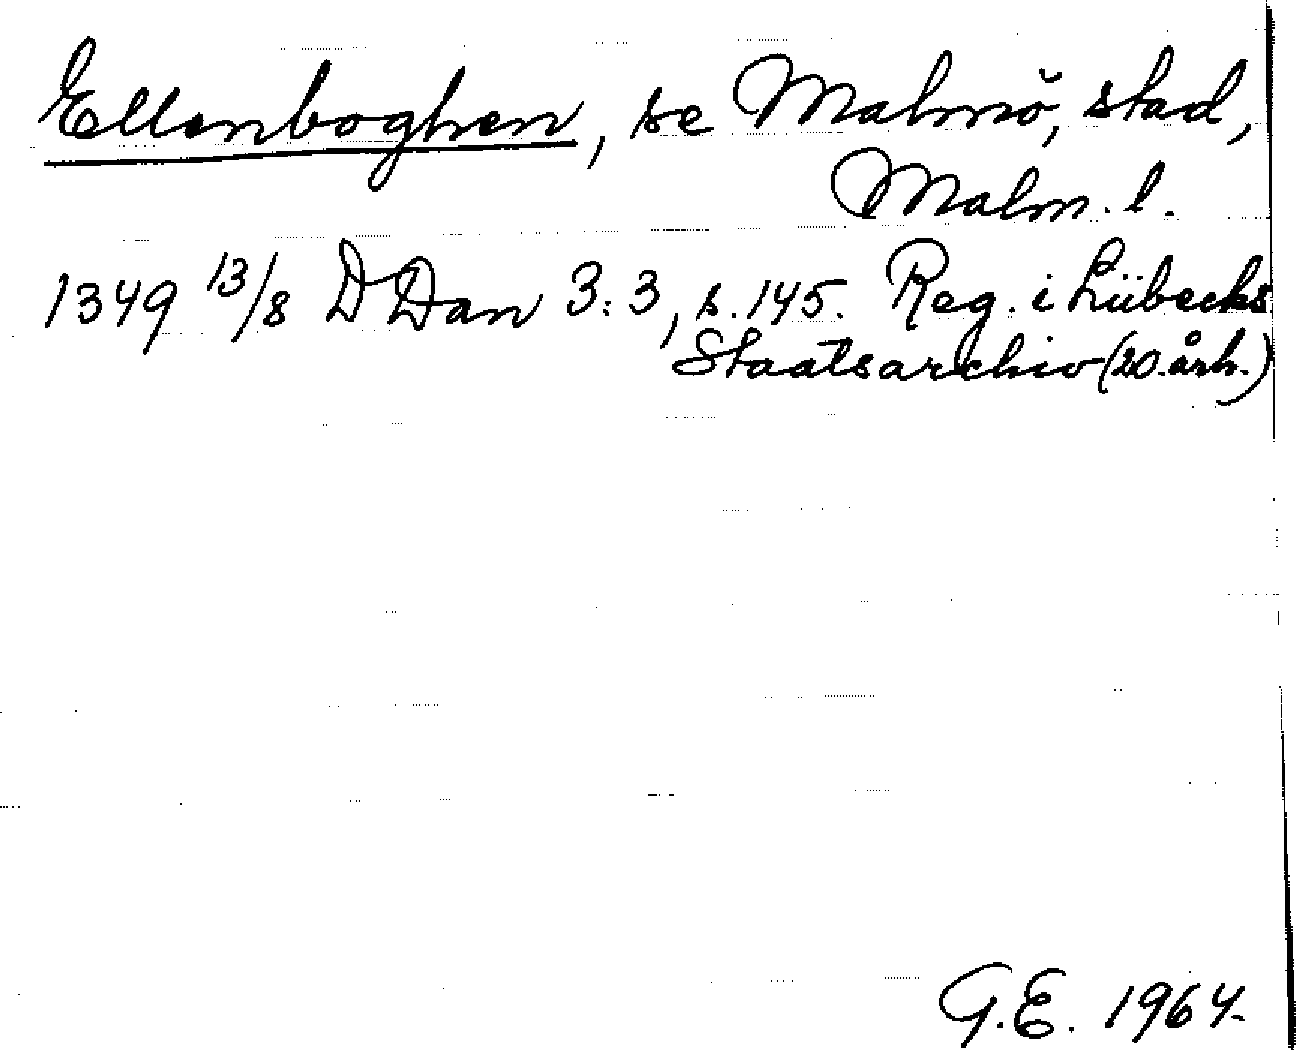 Ellenboghen, se Malmö, stad,
Malm. l.
1349 13/8 DDan 3:3, s. 145. Reg. i Lübecks
Staatsarchiv (20. årh.)
G.E. 1964.